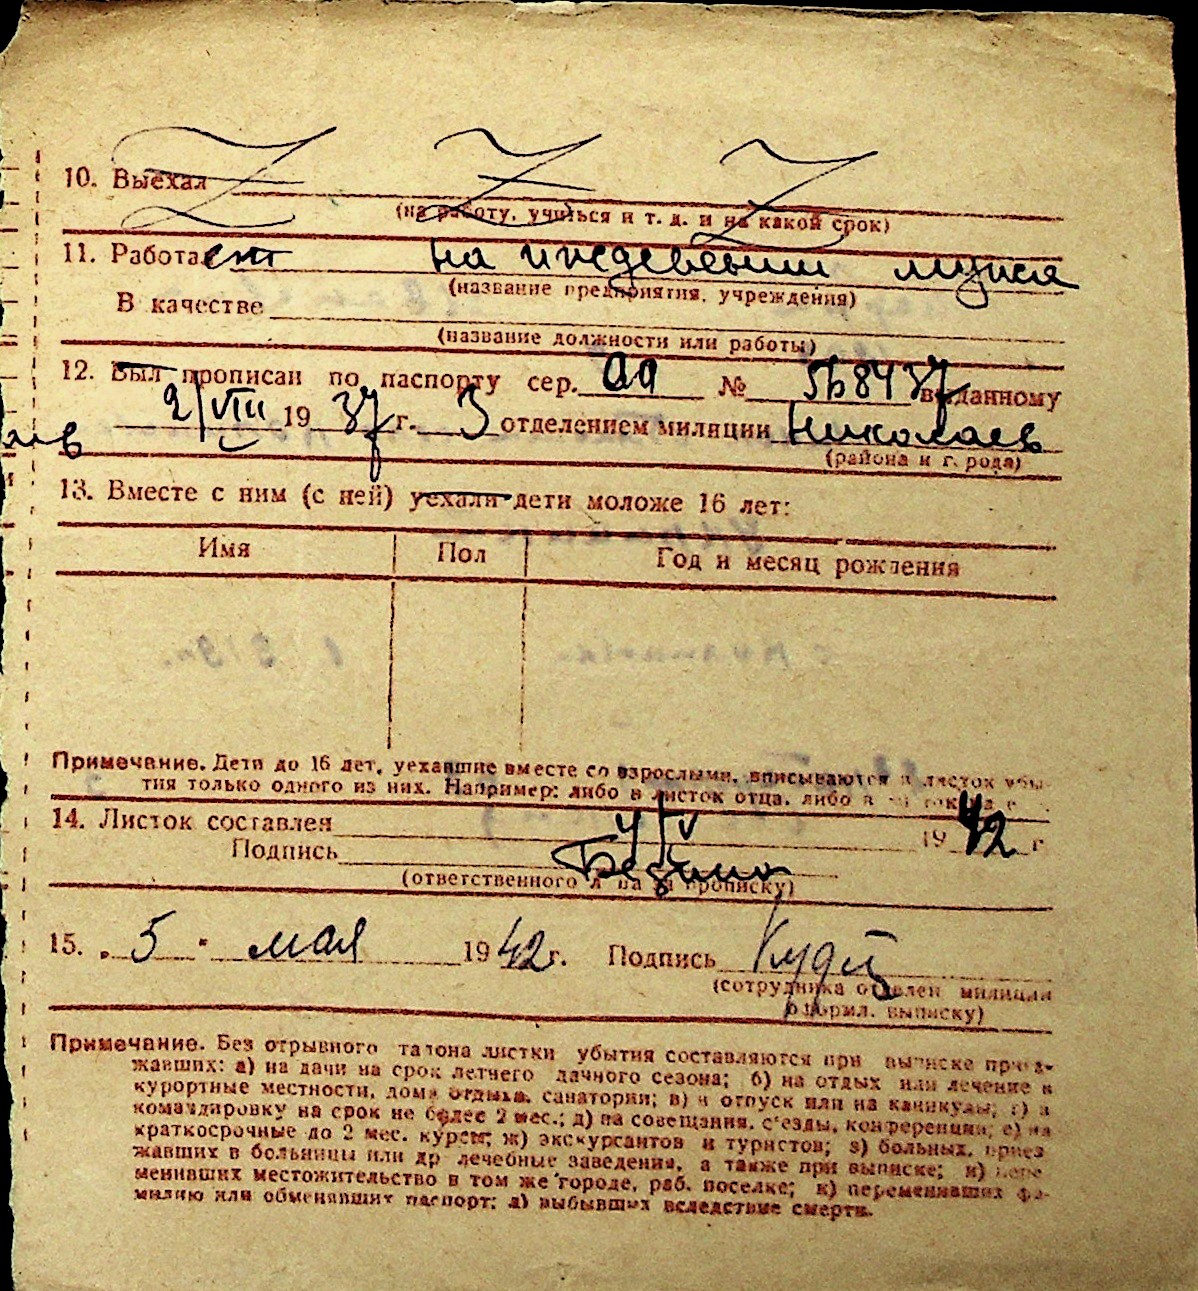 10. Выехал
(на работу, учиться и т. д. и на какой срок)
11. Работает на иждевении мужа
(название предприятия, учреждения)
В качестве
(название должности или работы)
12. Был прописан по паспорту сер. № выданному
2/VIII 1937 г. 3 отделением милиции Николаев
(района и города)
13. Вместе с ним (с ней) уехали дети моложе 16 лет:
Имя Пол Год и месяц рождения
Примечание. Дети до 16 лет, уехавшие вместе со взрослыми, вписываются в листок убы-
тия только одного из них. Например: либо в листок отца, либо в
14. Листок составлен 4/V 1942 г
Подпись
(ответственного лица за прописку)
15. „5" мая 1942 г. Подпись
(сотрудника отделен милиции
оформил. выписку)
Примечание. Без отрывного талона листки убытия составляются при выписке приез-
жавших: а) на дачи на срок летнего дачного сезона; б) на отдых или лечение в
курортные местности, дома отдыха, санатории; в) в отпуск или на каникулы; г) в
командировку на срок не более 2 мес.; д) на совещания, с'езды, конференции; е) на
краткосрочные до 2 мес. курсы; ж) экскурсантов и туристов; з) больных, приез
жавших в больницы или др лечебные заведения, а также при выписке; и) пере
менивших местожительство в том же городе, раб. поселке; к) переменивших фа-
милию или обменявших паспорт; л) выбывших вследствие смерти.